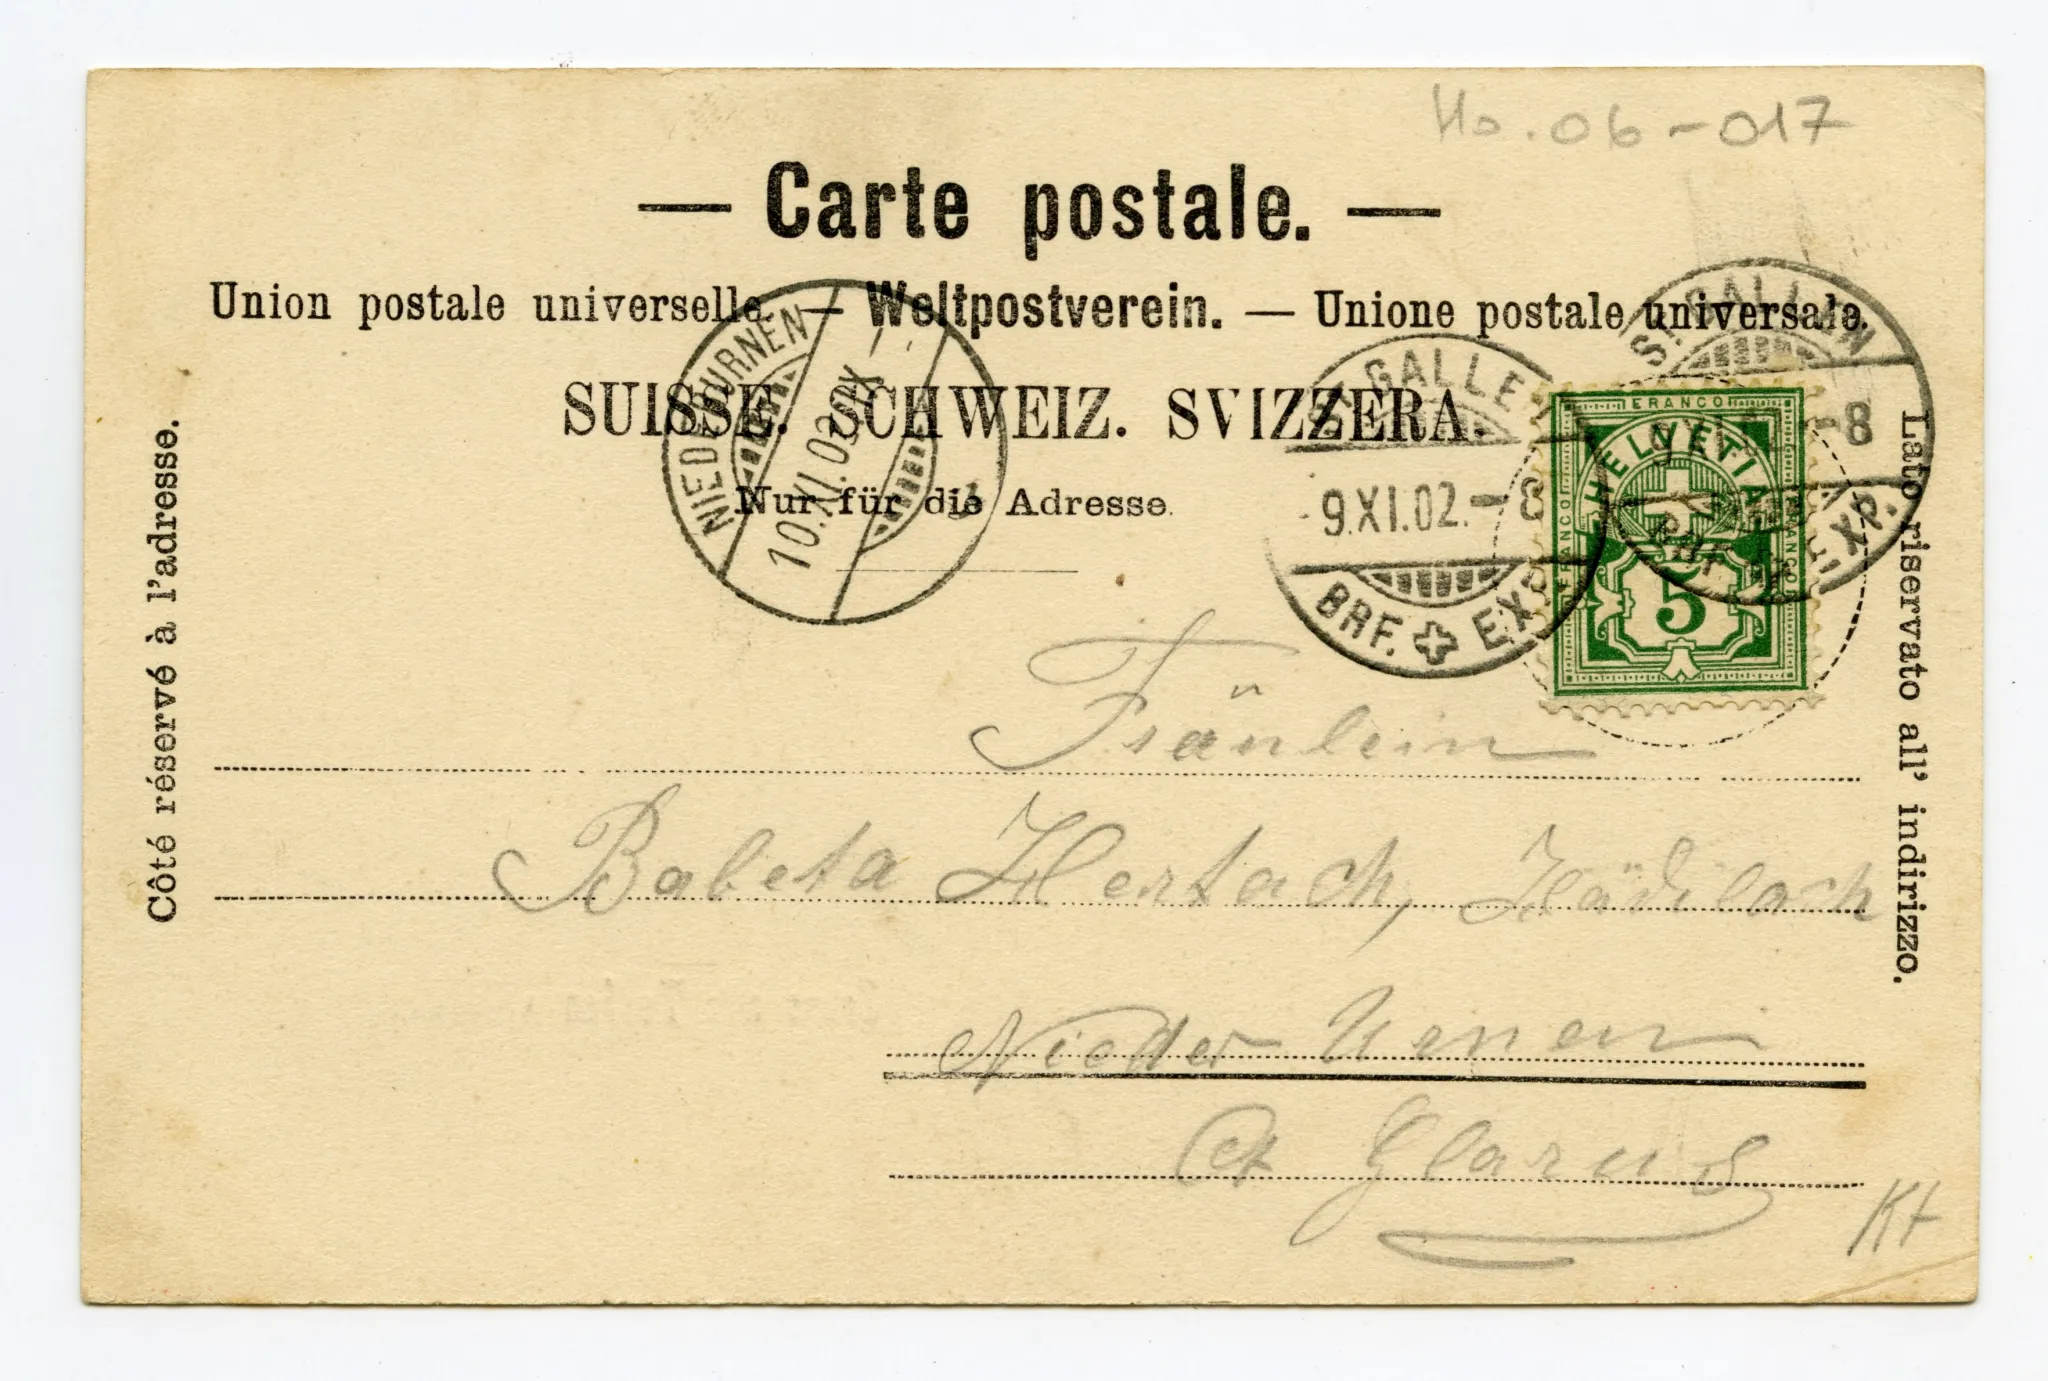 Ho. 06-017
— Carte postale. —
Union postale universelle. — Weltpostverein. — Unione postale universale.
SUISSE. SCHWEIZ. SVIZZERA.
Nur für die Adresse.
Côté réservé à l'adresse.
Lato riservato all' indirizzo.
NIEDERURNEN
10.XI.02
ST. GALLEN
9.XI.02.-8
BRF. EXP.
ST. GALLEN
-8
BRF. EXP.
FRANCO
HELVETIA
FRANCO
FRANCO
5
Fräulein
Babeta Hertach,
Nieder Urnen
Ct Glarus
Kt